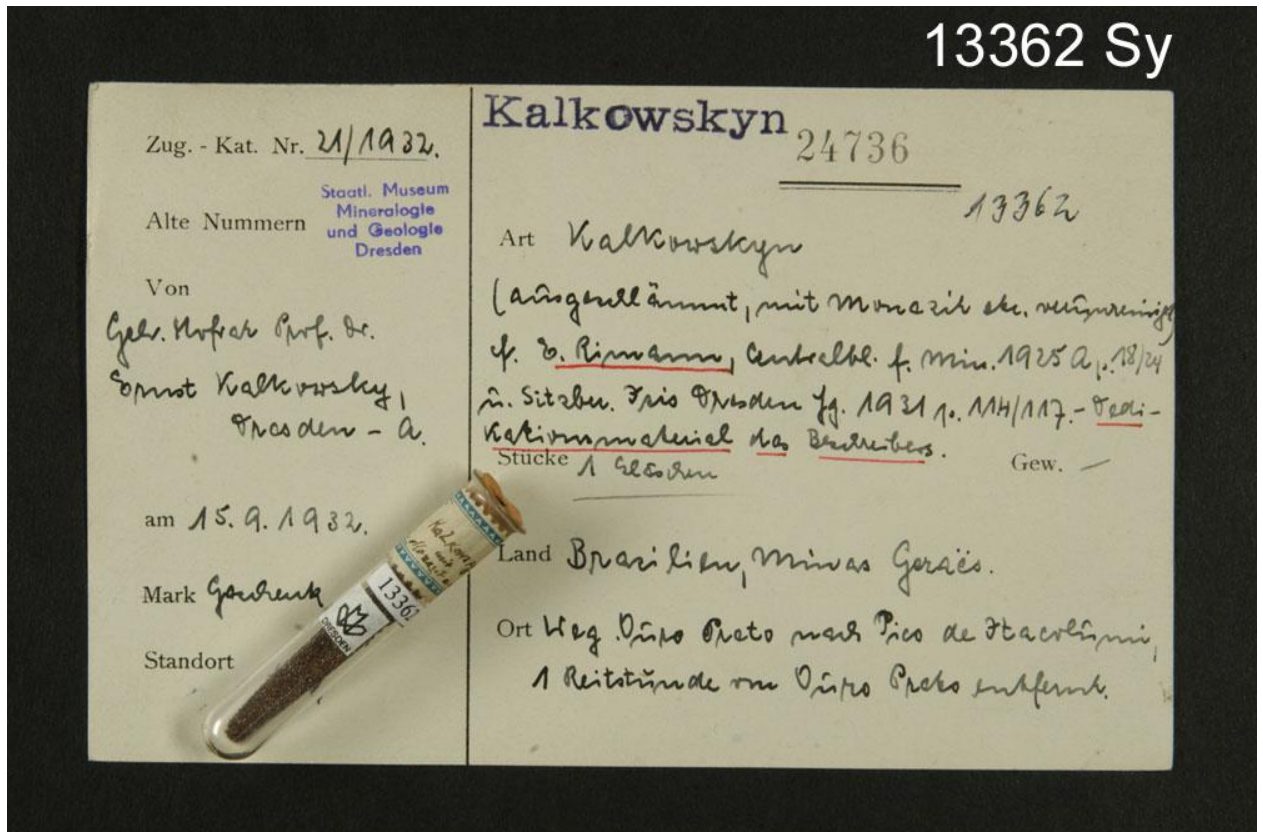 13362 Sy
Zug. - Kat. Nr. 21/1932.
Alte Nummern
Staatl. Museum
Mineralogie
und Geologie
Dresden
Von
Geh. Hofrat Prof. Dr.
Ernst Kalkowsky,
Dresden - A.
am 15.9.1932.
Mark Geschenk
Standort
Kalkowskyn
24736
13362
Art Kalkowskyn
(ausgeschlämmt, mit Monazit etc. verunreinigt)
cf. E. Rimann, Centralbl. f. Min. 1925 A p. 18/24
u. Sitzber. Isis Dresden Jg. 1931 p. 114/117. - Dedi-
kationsmaterial des Beschreibers.
Stücke 1 Gläschen
Gew. -
Land Brasilien, Minas Geraës.
Ort Weg Ouro Preto nach Pico de Itacolumi,
1 Reitstunde von Ouro Preto entfernt.
13362
DRESDEN